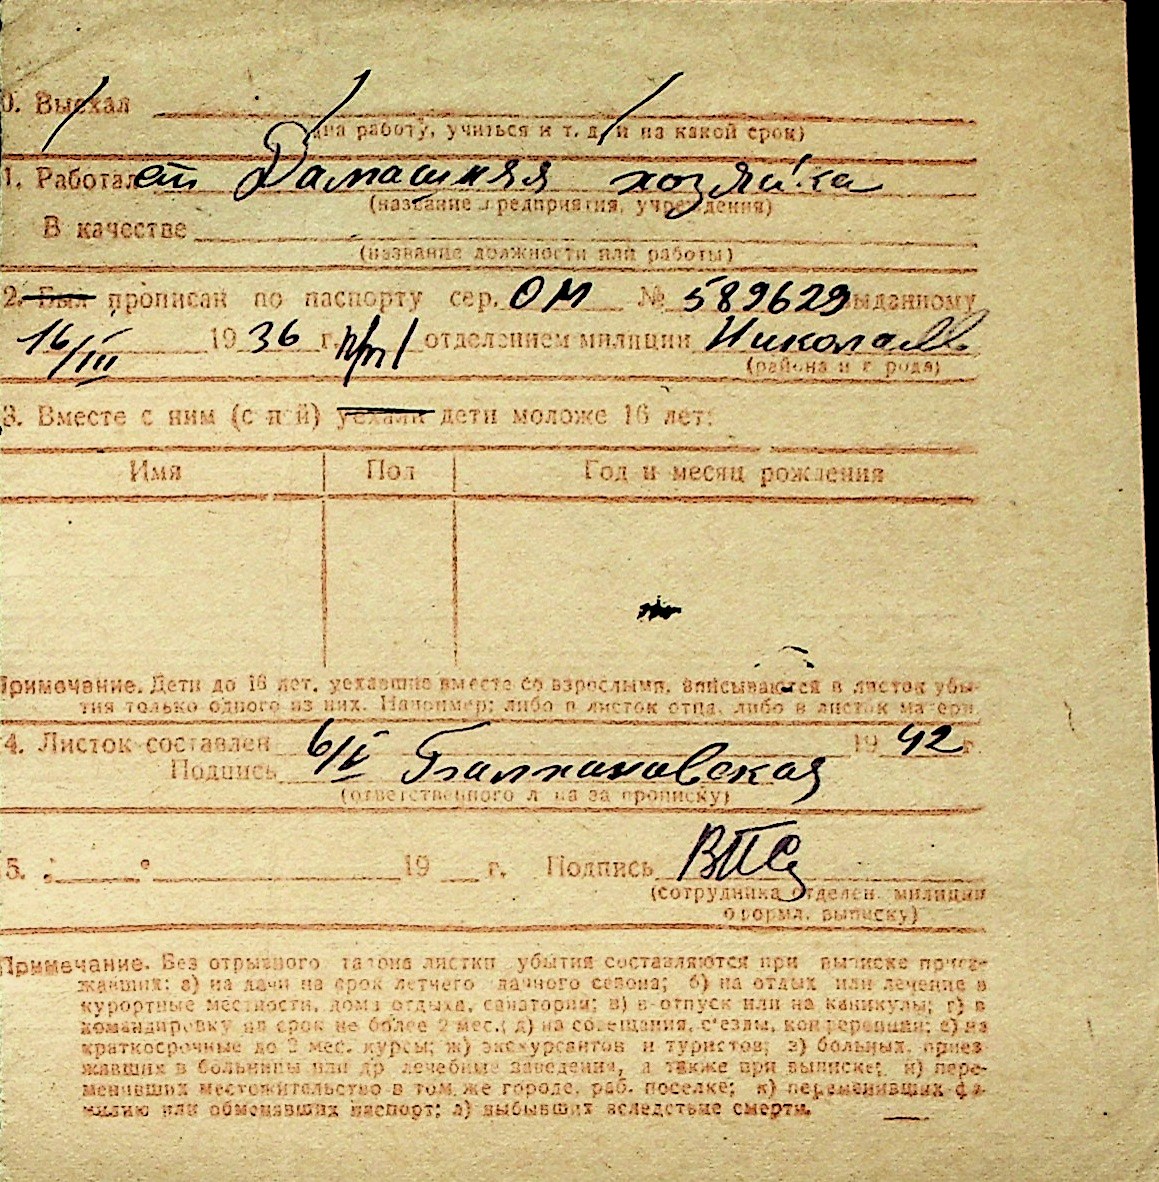 0. Выехал
(на работу, учиться и т. д. и на какой срок)
1. Работает Дамашняя хозяйка
(название предприятия, учреждения)
В качестве
(название должности или работы)
2. Был прописан по паспорту сер. ОМ № 589629 выданному
16/III 1936 г. отделением милиции
(района и города)
3. Вместе с ним (с ней) уехали дети моложе 16 лет:
Имя Пол Год и месяц рождения
Примечание. Дети до 16 лет, уехавшие вместе со взрослыми, вписываются в листок убы-
тия только одного из них. Например: либо в листок отца, либо в листок матери
4. Листок составлен 6/V 1942 г.
Подпись
(ответственного лица за прописку)
5. 19 г. Подпись
(сотрудника отделен. милиции
оформл. выписку)
Примечание. Без отрывного талона листки убытия составляются при выписке приез-
жавших: а) на дачи на срок летнего дачного сезона; б) на отдых или лечение в
курортные местности, дома отдыха, санатории; в) в отпуск или на каникулы; г) в
командировку на срок не более 2 мес.; д) на совещания, с'езды, конференции; е) на
краткосрочные до 2 мес. курсы; ж) экскурсантов и туристов; з) больных, приез
жавших в больницы или др лечебные заведения, а также при выписке; и) пере-
менивших местожительство в том же городе, раб. поселке; к) переменивших фа-
милию или обменявших паспорт; л) выбывших вследствие смерти.